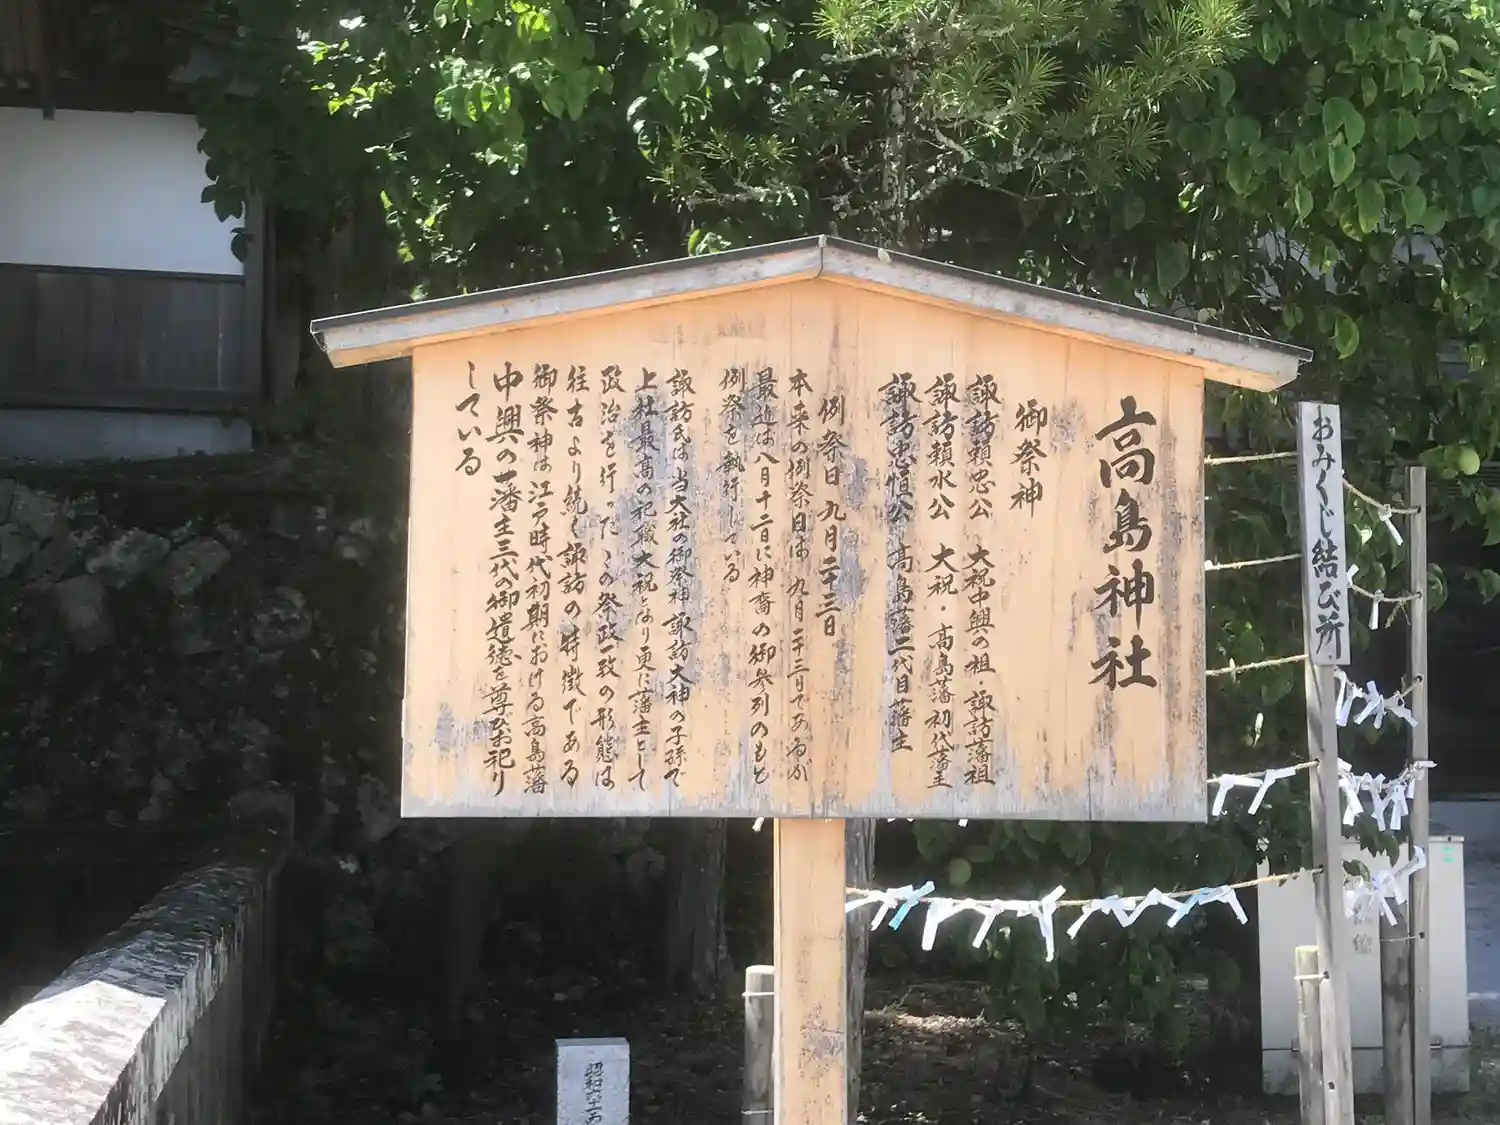 高島神社
御祭神
諏訪頼忠公 大祝中興の祖・諏訪藩祖
諏訪頼水公 大祝・高島藩初代藩主
諏訪忠恒公 高島藩二代目藩主
例祭日 九月二十三日
本来の例祭日は 九月二十三日であるが
最近は八月十二日に神裔の御参列のもと
例祭を執行している
諏訪氏は 当大社の御祭神 諏訪大神の子孫で
上社最高の祀職大祝となり更に藩主として
政治を行った この祭政一致の形態は
往古より続く諏訪の特徴である
御祭神は 江戸時代初期における高島藩
中興の一 藩主三代の御遺徳を尊びお祀り
している
おみくじ結び所
昭和六十一